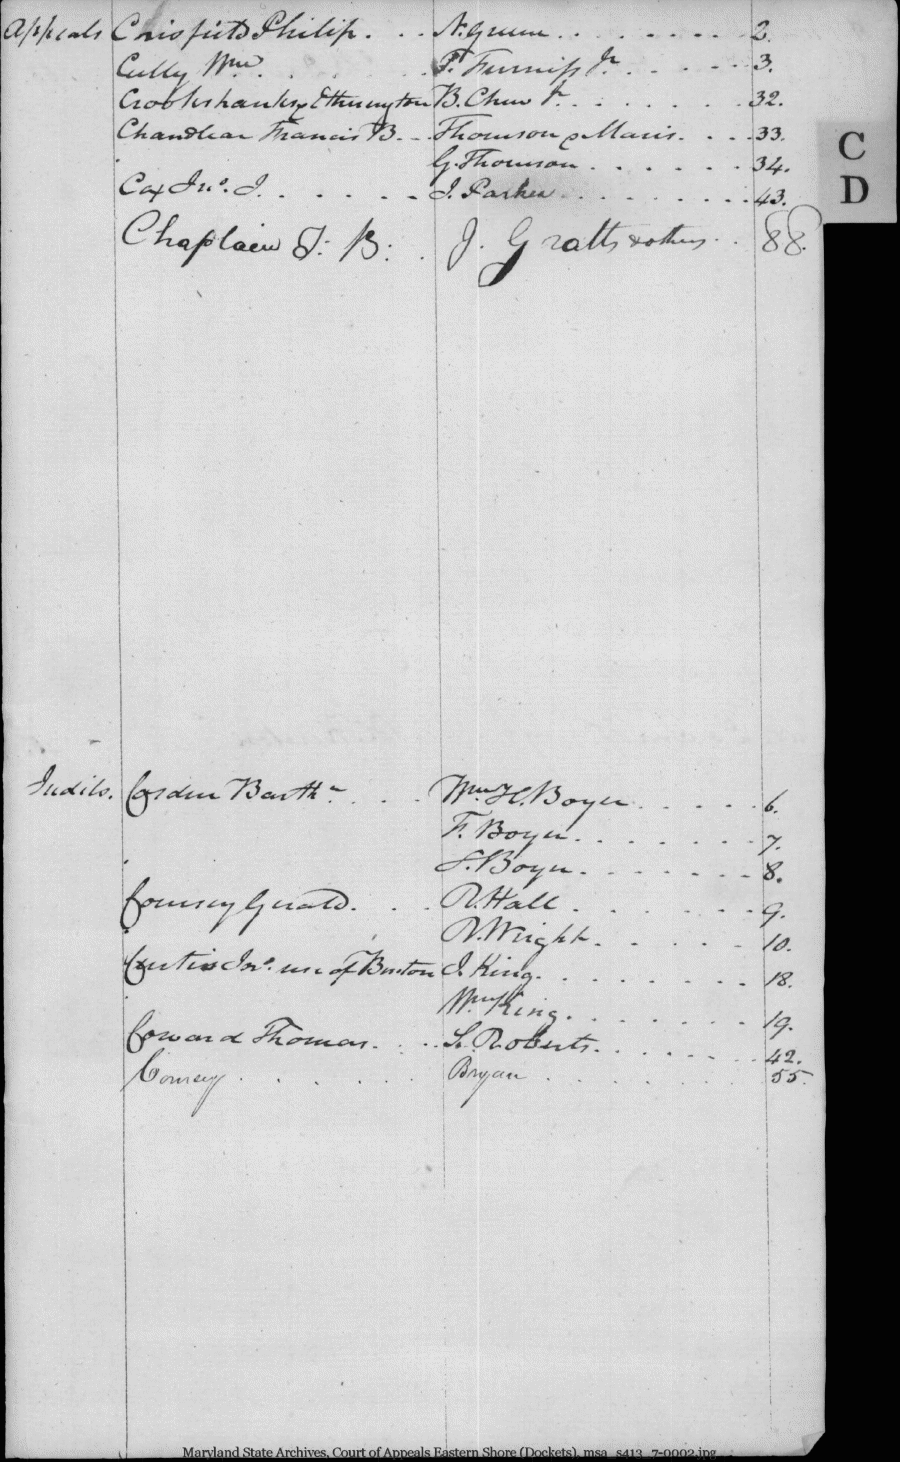 Appeals Crisfield Philip. . . N. Green . . . . . . . . 2.
Cully Wm. . . . . . . F. Furniss Jr . . . . . . 3.
Crookshanks & Etherington B. Chew Jr . . . . . . . 32.
Chandlear Francis B. . . Thomson & Maris. . . . 33.
G. Thomson . . . . . . . 34.
Cox Jno. J. . . . . . . J. Parker . . . . . . . . . 43.
Chaplain J. B. . J. Gratts & others . . 88.
C
D
Judils. Corden Barthw. . . . Wm. H. Boyer . . . . . 6.
F. Boyer . . . . . . . . 7.
Boyer . . . . . . . . 8.
Coursey Gerald. . . . R. Hall . . . . . . . 9.
R. Wright . . . . . 10.
Curtis Jno. use of Burton J. King. . . . . . . . . 18.
Wm. King. . . . . . . . 19.
Coward Thomas. . . . S. Roberts. . . . . . . . 42.
Coursey . . . . . . Bryan . . . . . . . . 55.
Maryland State Archives, Court of Appeals Eastern Shore (Dockets), msa_s413_7-0002.jpg